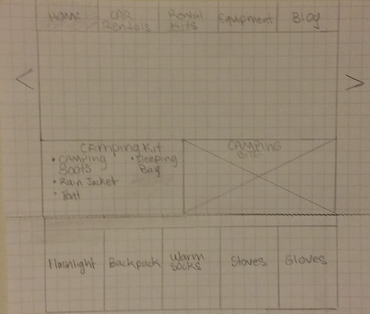 Home
Car
Rentals
Rental
Kits
Equipment
Blog
< >
Camping Kit
• Camping
Boots
• Rain Jacket
• Tent
• Sleeping
Bag
Camping
Flashlight
Backpack
Warm
Socks
Stoves
Gloves